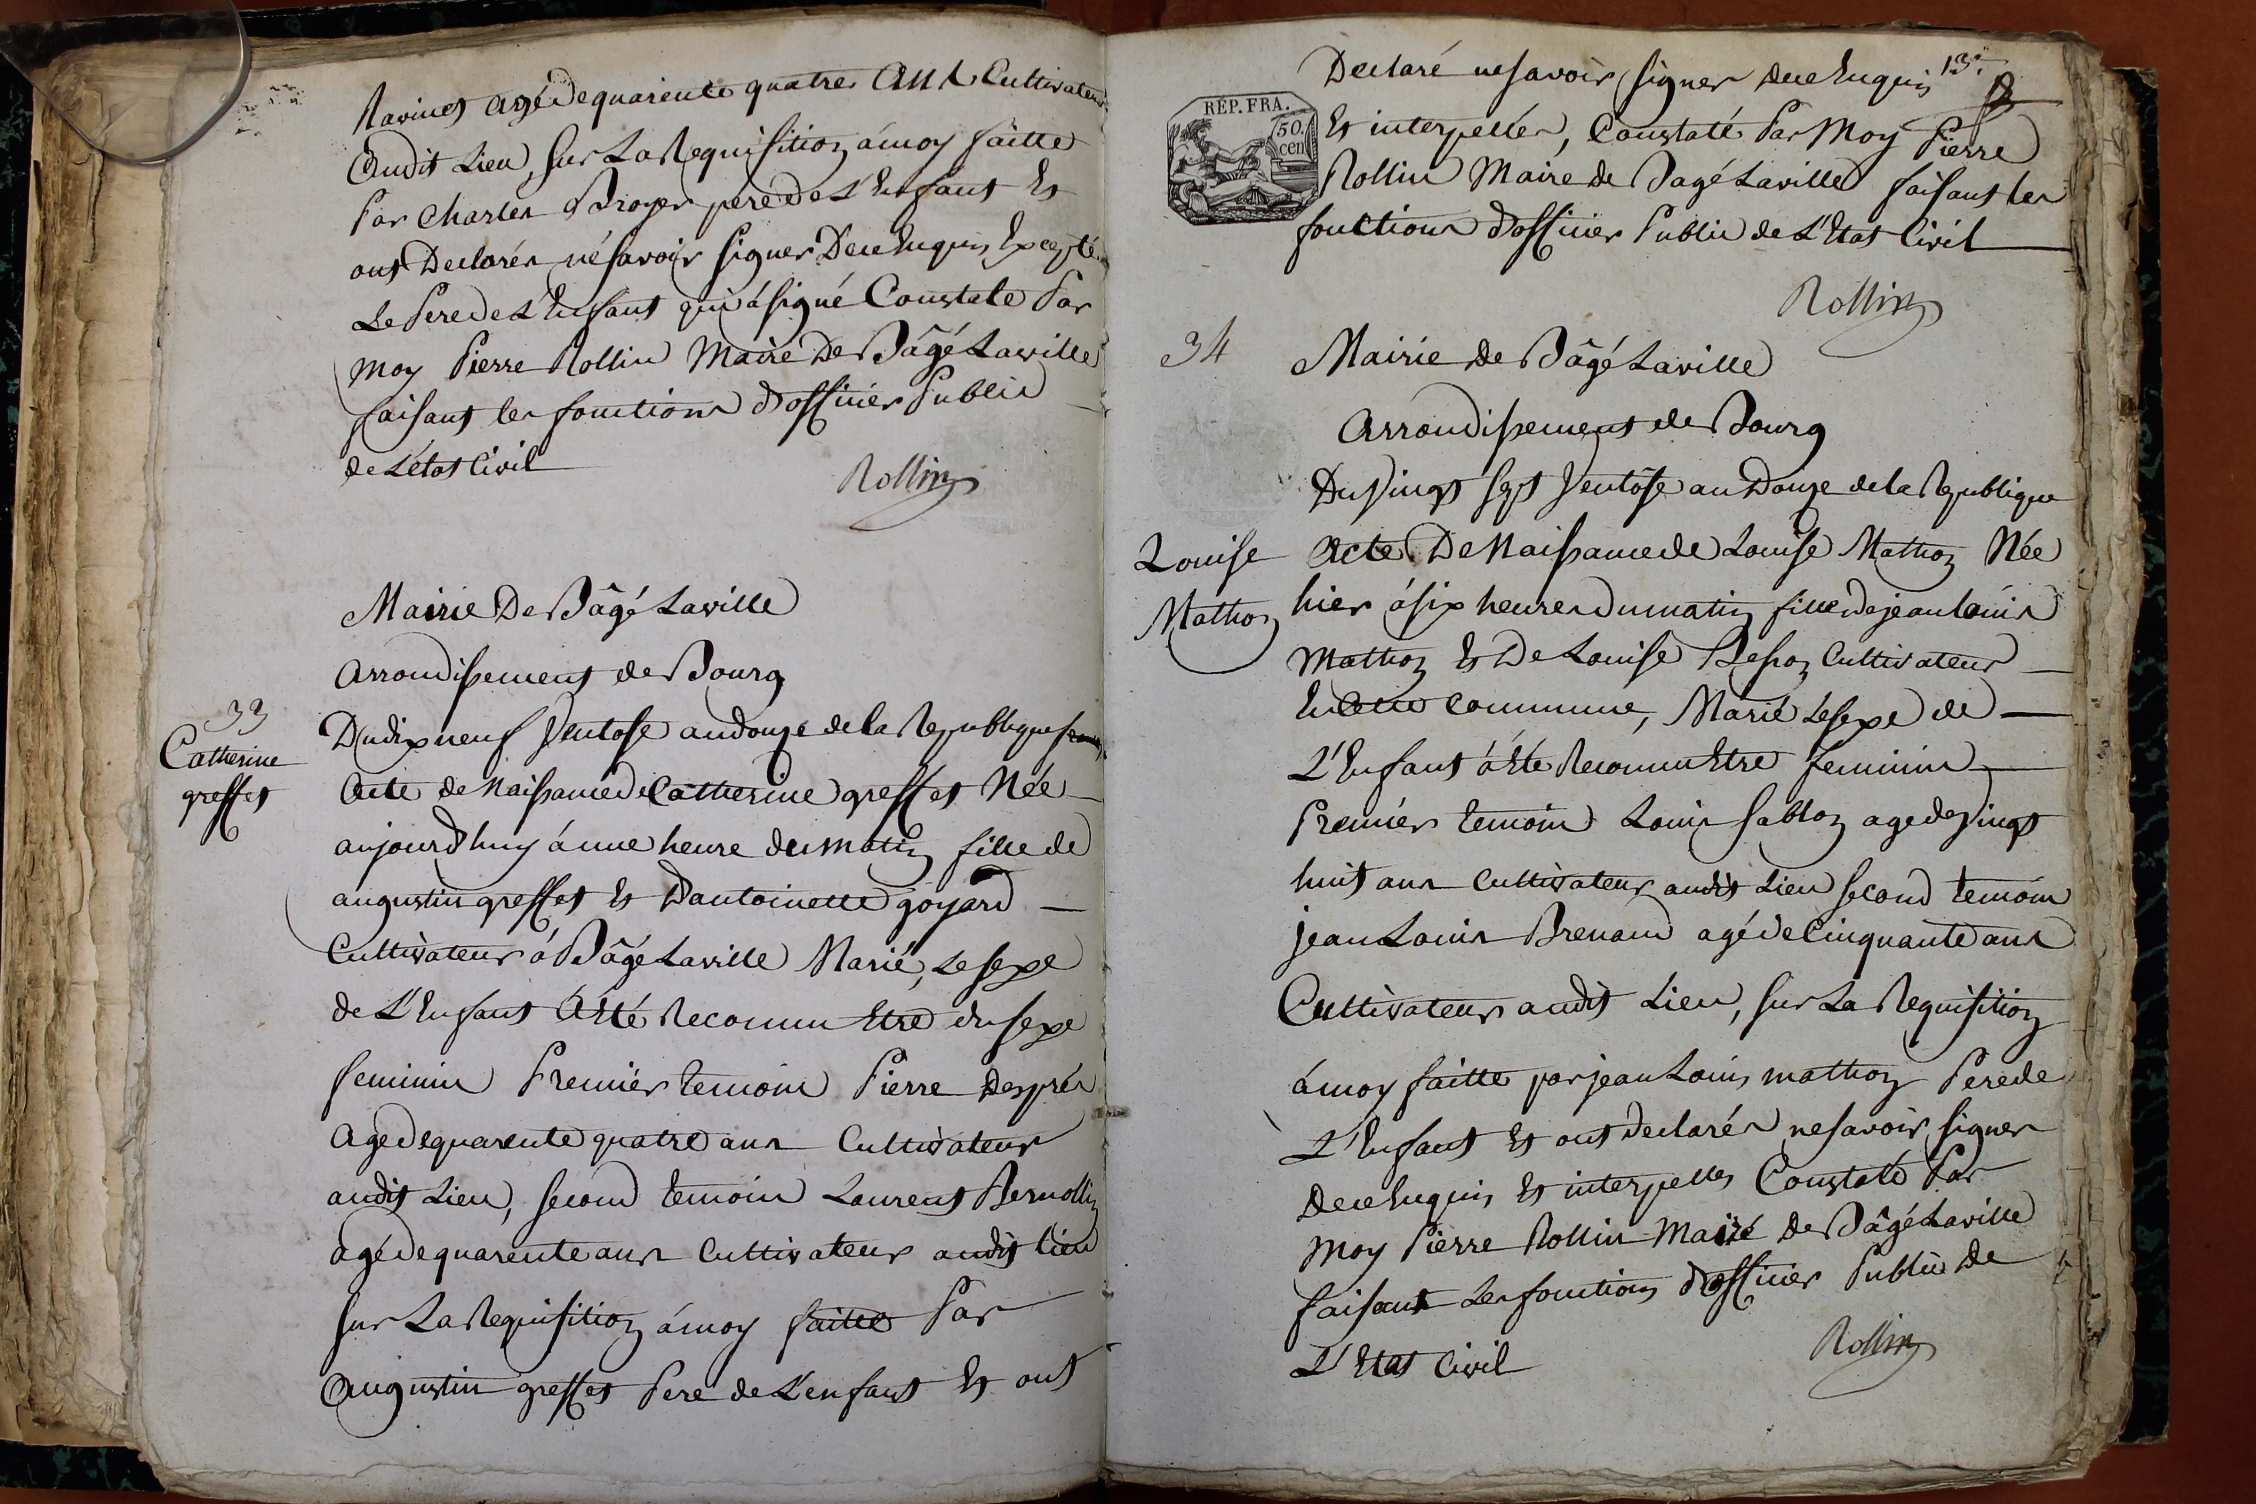 Ravinet agé de quarente quatre ans Cultivateur
audit Lieu, sur La Requisition á moy faitte
Par Charles Broyer pere de L'Enfant Et
ont Declarés né savoir signer De ce Enquis Excepté
Le Pere de L'Enfant qui á signé Constaté Par
moy Pierre Rollin Maire De Bâgé Laville
faisant les fonctions d'officier Public
de L'état Civil
Rollin
Mairie De Bâgé Laville
arrondissement de Bourg
33
Catherine
greffet
Du dix neuf Ventose an douze de la Republique
Acte de Naissance de Catherine greffet Née
aujourd'huy á une heure du matin fille de
augustin greffet Et D'antoinette goyard
Cultivateur á Bâgé Laville Marié, Le sexe
de L'Enfant á Eté Reconnu Etre du sexe
feminin Premiér temoin Pierre Desprès
agé de quarente quatre ans Cultivateur
audit Lieu, second temoin Laurent Bernollin
agé de quarente ans Cultivateur audit lieu
sur La Requisition á moy faitte Par
Augustin greffet Pere de L'enfant Et ont
13
Declaré ne savoir signer de ce Enquis
RÉP. FRA.
50.
cen
Et interpellés, Constaté Par Moy Pierre
Rollin Maire de Bagé Laville faisant les
fonctions d'officier Public de L'Etat Civil
Rollin
34
Mairie de Bâgé Laville
arrondissement de Bourg
Du Vingt sept Ventôse an Douze de la Republique
Louise
Mathon
Acte De Naissance de Louise Mathon Née
hier á six heures du matin fille de jean louis
Mathon Et De Louise Besson Cultivateur
En Cette Commune, Marié Le sexe de
L'Enfant á Eté Reconnu Etre feminin
Premiér temoin Louis Sablon age de Vingt
huit ans Cultivateur audit Lieu second temoin
jean Louis Brenaud agé de Cinquante ans
Cultivateur audit Lieu, sur La Requisition
á moy faitte par jean Louis mathon Pere de
L'Enfant Et ont declarés ne savoir signer
De ce Enquis Et interpelles Constaté Par
Moy Pierre Rollin Maire De Bâgé Laville
faisant Les fonctions d'officier Public De
L'Etat Civil
Rollin